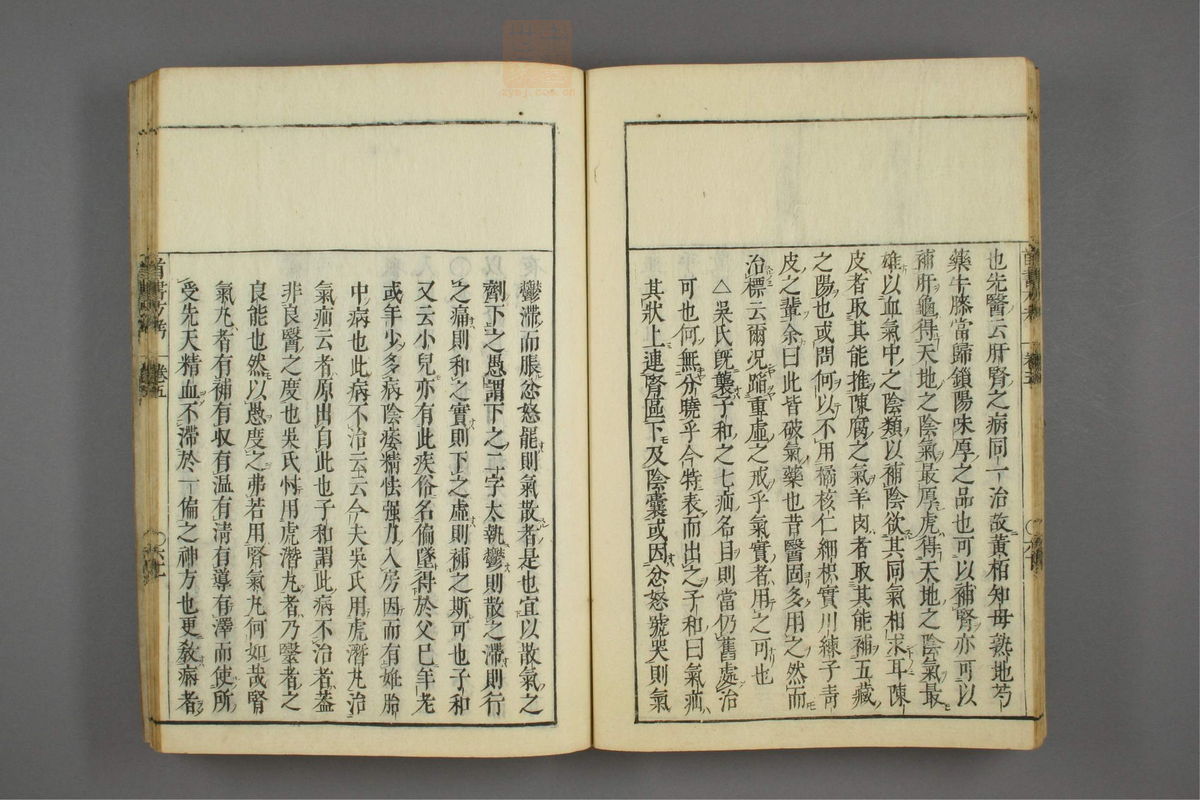 也先醫云肝腎之病同一治故黃栢知母熟地芍
藥牛膝當歸鎖陽味厚之品也可以補腎亦可以
補肝龜得天地之陰氣最厚虎得天地之陰氣最
雄以血氣中之陰類以補陰欲其同氣相求耳陳
皮者取其能推陳腐之氣羊肉者取其能補五藏
之陽也或問何以不用橘核仁細枳實川練子青
皮之輩余曰此皆破氣藥也昔醫固多用之然而
治標云爾况蹈重虛之戒乎氣實者用之可也
△吳氏旣襲子和之七疝名目則當仍舊處治
可也何無分曉乎今特表而出之子和曰氣疝
其狀上連腎區下及陰囊或因忿怒號哭則氣
鬱滯而脹忿怒罷則氣散者是也宜以散氣之
劑下之愚謂下之二字太執鬱則散之滯則行
之痛則和之實則下之虛則補之斯可也子和
又云小兒亦有此疾俗名偏墜得於父已年老
或年少多病陰痿精怯强力入房因而有姙胎
中病也此病不治云云今夫吳氏用虎潛丸治
氣疝云者原出自此也子和謂此病不治者蓋
非良醫之度也吳氏忖用虎潛丸者乃毉者之
良能也然以愚度之弗若用腎氣丸何如哉腎
氣丸者有補有収有温有淸有導有澤而使所
受先天精血不滯於一偏之神方也更教病者
卷五
卷五
zysj.com.cn